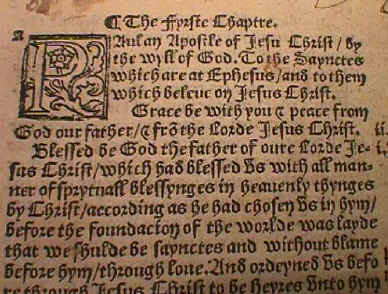 ¶ The Fyrste Chaptre.
a
PAul an Apostle of Jesu Christ / by
the wyll of God. To the Saynctes
which are at Ephesus / and to them
which beleue on Jesus Christ.
Grace be with you & peace from
God our father / & frō the Lorde Jesus Christ. ii.
Blessed be God the father of oure Lorde Je-
sus Christ / which hath blessed vs with all man-
ner of sprytuall blessynges in heauenly thynges
by Christ / according as he had chosen vs in hym /
before the foundacion of the worlde was layde
that we shulde be saynctes and without blame
before hym / through loue. And ordeyned vs befo
re through Jesus Christ to be heyres vnto hym